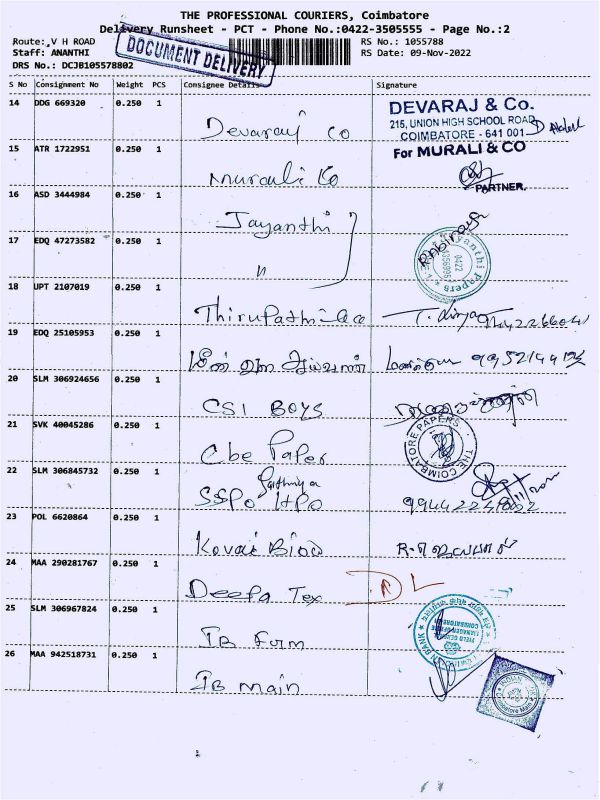 THE PROFESSIONAL COURIERS, Coimbatore
Delivery Runsheet - PCT - Phone No.:0422-3505555 - Page No.:2
Route: V H ROAD
RS No.: 1055788
Staff: ANANTHI
RS Date: 09-Nov-2022
DRS No.: DCJB105578802
DOCUMENT DELIVERY
S No Consignment No Weight PCS Consignee Details Signature
14 DDG 669320 0.250 1
Devaraj co
DEVARAJ & Co.
215, UNION HIGH SCHOOL ROAD
COIMBATORE - 641 001
15 ATR 1722951 0.250 1
Murali Co
For MURALI & CO
PARTNER.
16 ASD 3444984 0.250 1
Jayanthi
17 EDQ 47273582 0.250 1
"
18 UPT 2107019 0.250 1
19 EDQ 25105953 0.250 1
மீன்
20 SLM 306924656 0.250 1
CSI BOYS
21 SVK 40045286 0.250 1
Cbe Paper
THE COIMBATORE PAPERS
22 SLM 306845732 0.250 1
SSPO HPO
23 POL 6620864 0.250 1
Kovai
24 MAA 290281767 0.250 1
Deepa Tex
D L
25 SLM 306967824 0.250 1
IB
26 MAA 942518731 0.250 1
IB main